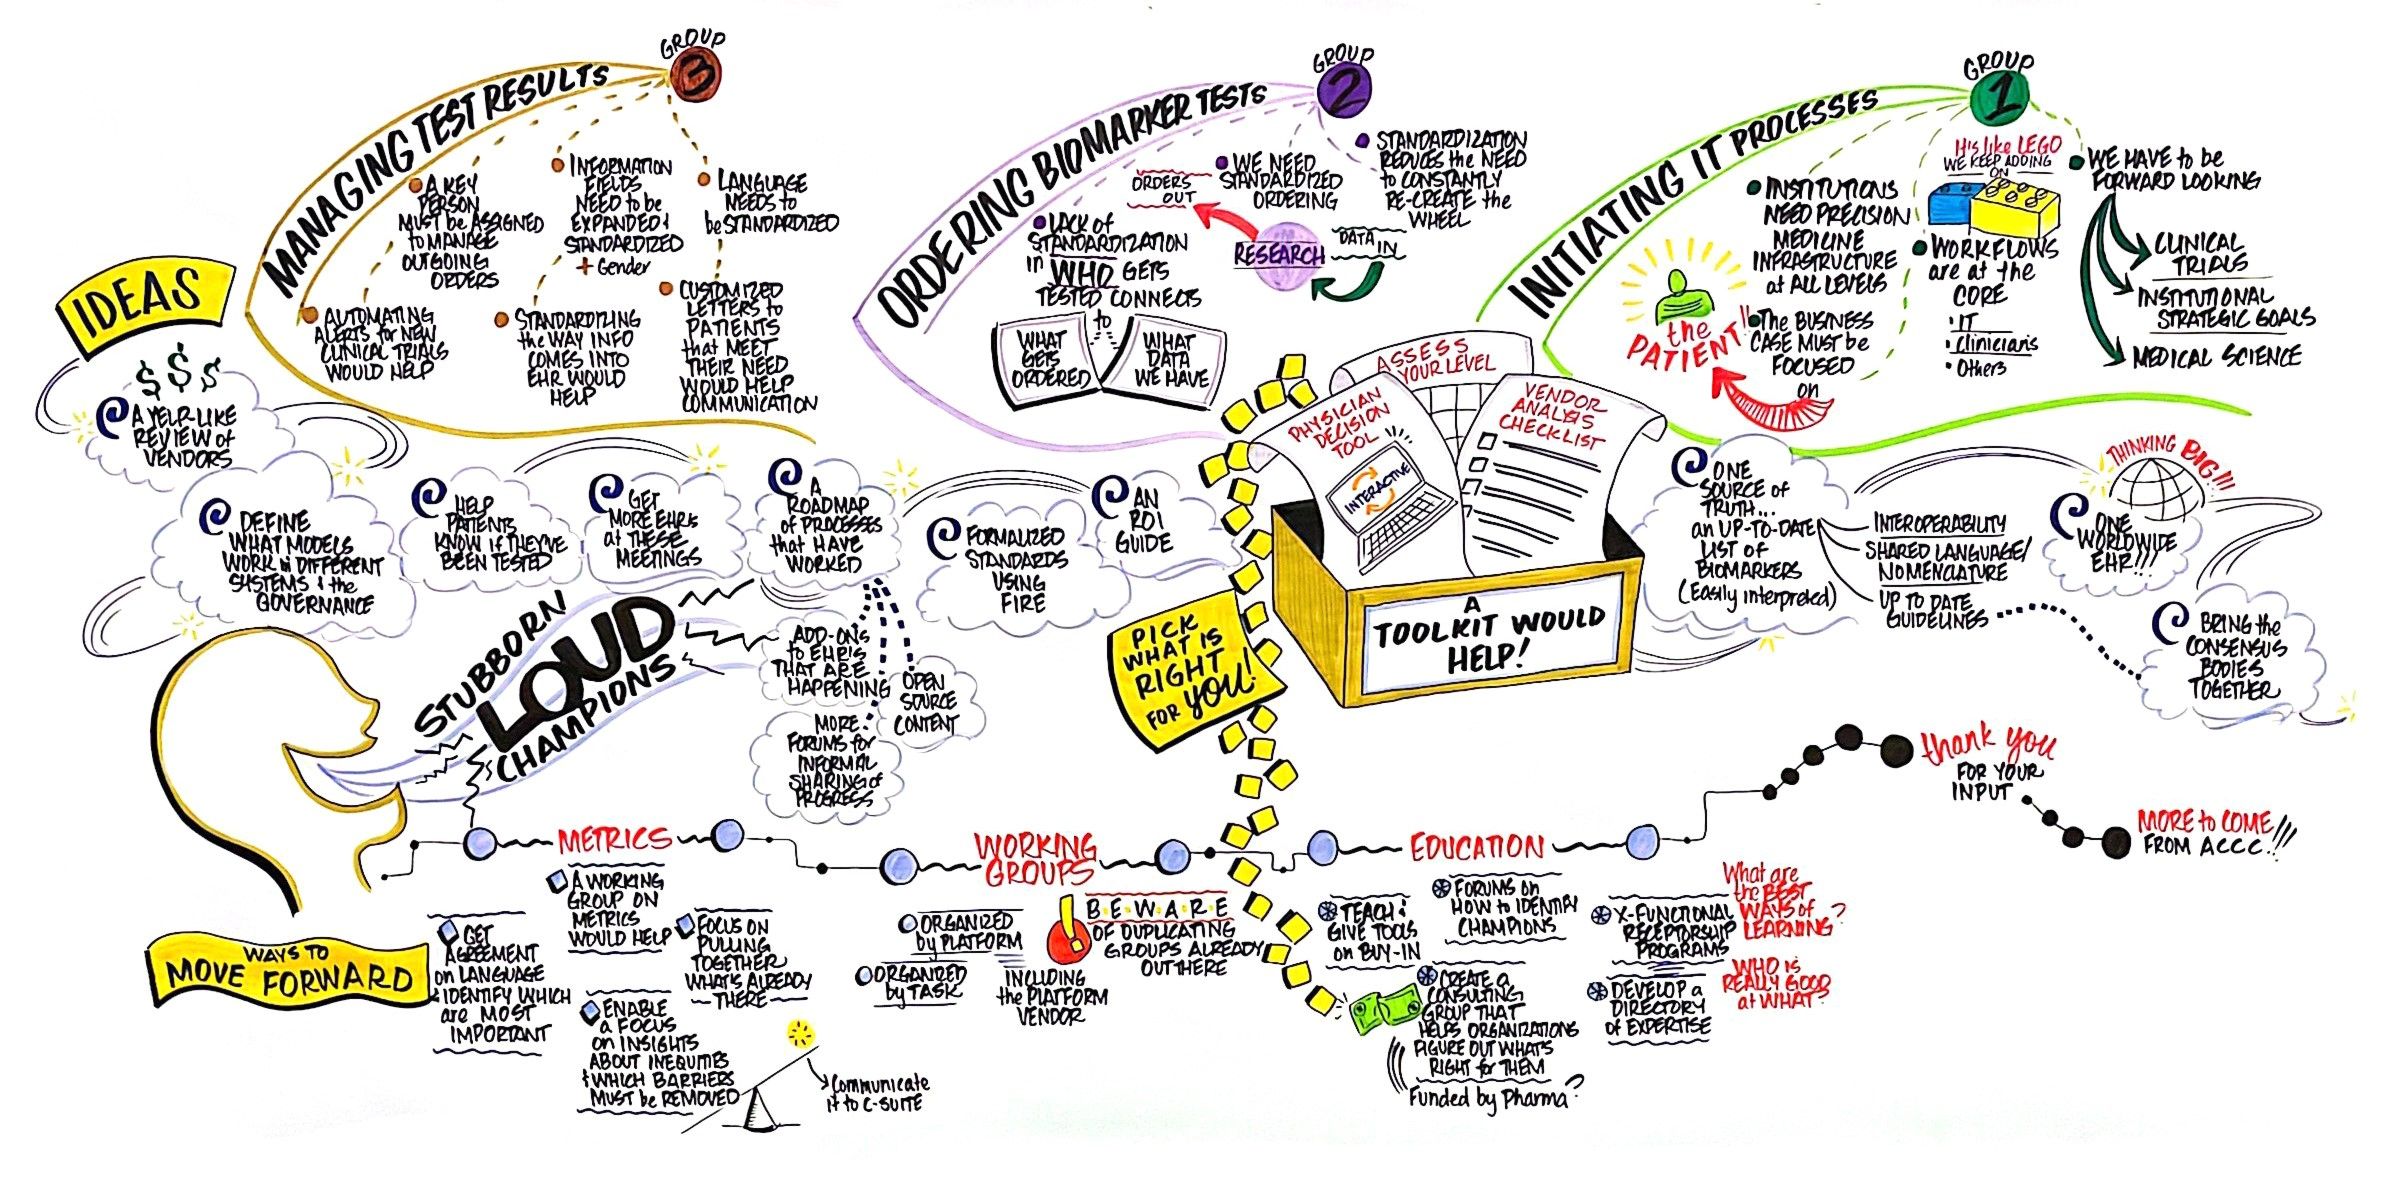 GROUP
3
MANAGING TEST RESULTS
A KEY
PERSON
MUST be ASSIGNED
to MANAGE
OUTGOING
ORDERS
INFORMATION
FIELDS
NEED to be
EXPANDED &
STANDARDIZED
+ Gender
LANGUAGE
NEEDS to
be STANDARDIZED
AUTOMATING
ALERTS for NEW
CLINICAL TRIALS
WOULD HELP
STANDARDIZING
the WAY INFO
COMES INTO
EHR WOULD
HELP
CUSTOMIZED
LETTERS to
PATIENTS
that MEET
THEIR NEED
WOULD HELP
COMMUNICATION
GROUP
2
ORDERING BIOMARKER TESTS
LACK of
STANDARDIZATION
in WHO GETS
TESTED CONNECTS
to
WHAT
GETS
ORDERED
WHAT
DATA
WE HAVE
ORDERS
OUT
RESEARCH
DATA
IN
WE NEED
STANDARDIZED
ORDERING
STANDARDIZATION
REDUCES the NEED
to CONSTANTLY
RE-CREATE the
WHEEL
GROUP
1
INITIATING IT PROCESSES
INSTITUTIONS
NEED PRECISION
MEDICINE
INFRASTRUCTURE
at ALL LEVELS
The BUSINESS
CASE MUST be
FOCUSED
on
the
PATIENT!!
It's like LEGO
WE KEEP ADDING
ON
WORKFLOWS
are at the
CORE
• IT
• Clinicians
• Others
WE HAVE to be
FORWARD LOOKING
CLINICAL
TRIALS
INSTITUTIONAL
STRATEGIC GOALS
MEDICAL SCIENCE
IDEAS
$ $ $
A YELP-LIKE
REVIEW of
VENDORS
DEFINE
WHAT MODELS
WORK in DIFFERENT
SYSTEMS & the
GOVERNANCE
HELP
PATIENTS
KNOW if THEY'VE
BEEN TESTED
GET
MORE EHR's
at THESE
MEETINGS
A
ROADMAP
of PROCESSES
that HAVE
WORKED
ADD-ONs
to EHR'S
THAT ARE
HAPPENING
OPEN
SOURCE
CONTENT
MORE
FORUMS for
INFORMAL
SHARING of
PROGRESS
FORMALIZED
STANDARDS
USING
FIRE
AN
ROI
GUIDE
STUBBORN
LOUD
CHAMPIONS
PICK
WHAT IS
RIGHT
FOR YOU!
PHYSICIAN
DECISION
TOOL
INTERACTIVE
ASSESS
YOUR LEVEL
VENDOR
ANALYSIS
CHECKLIST
A
TOOLKIT WOULD
HELP!
ONE
SOURCE of
TRUTH...
an UP-TO-DATE
LIST of
BIOMARKERS
(Easily interpreted)
INTEROPERABILITY
SHARED LANGUAGE/
NOMENCLATURE
UP TO DATE
GUIDELINES
THINKING BIG!!!
ONE
WORLDWIDE
EHR!!!
BRING the
CONSENSUS
BODIES
TOGETHER
WAYS TO
MOVE FORWARD
METRICS
GET
AGREEMENT
on LANGUAGE
& IDENTIFY WHICH
are MOST
IMPORTANT
A WORKING
GROUP ON
METRICS
WOULD HELP
FOCUS ON
PULLING
TOGETHER
WHAT'S ALREADY
THERE
ENABLE
a FOCUS
on INSIGHTS
ABOUT INEQUITIES
& WHICH BARRIERS
MUST be REMOVED
Communicate
it to C-SUITE
WORKING
GROUPS
ORGANIZED
by PLATFORM
ORGANIZED
by TASK
INCLUDING
the PLATFORM
VENDOR
BEWARE
OF DUPLICATING
GROUPS ALREADY
OUT THERE
EDUCATION
TEACH &
GIVE TOOLS
on BUY-IN
FORUMS on
HOW to IDENTIFY
CHAMPIONS
CREATE a
CONSULTING
GROUP THAT
HELPS ORGANIZATIONS
FIGURE OUT WHAT'S
RIGHT for THEM
Funded by Pharma?
X-FUNCTIONAL
RECEPTORSHIP
PROGRAMS
DEVELOP a
DIRECTORY
of EXPERTISE
What are
the BEST
WAYS of
LEARNING?
WHO IS
REALLY GOOD
at WHAT?
thank you
FOR YOUR
INPUT
MORE to COME
FROM ACCC!!!